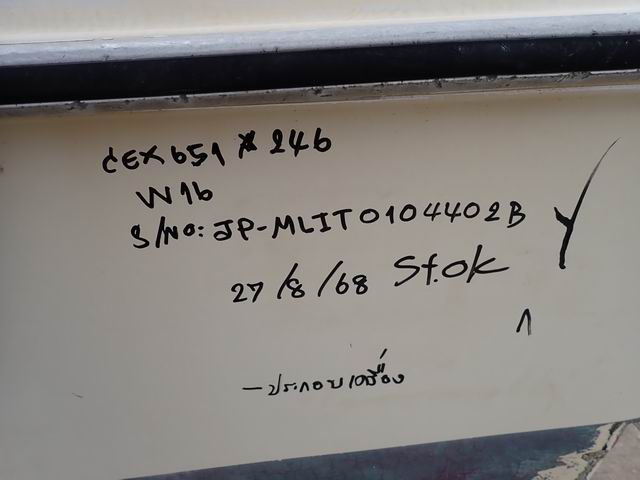 CEX651*246
W16
S/NO: JP-MLIT0104402B
27/8/68 St.ok
-ประกอบเครื่อง